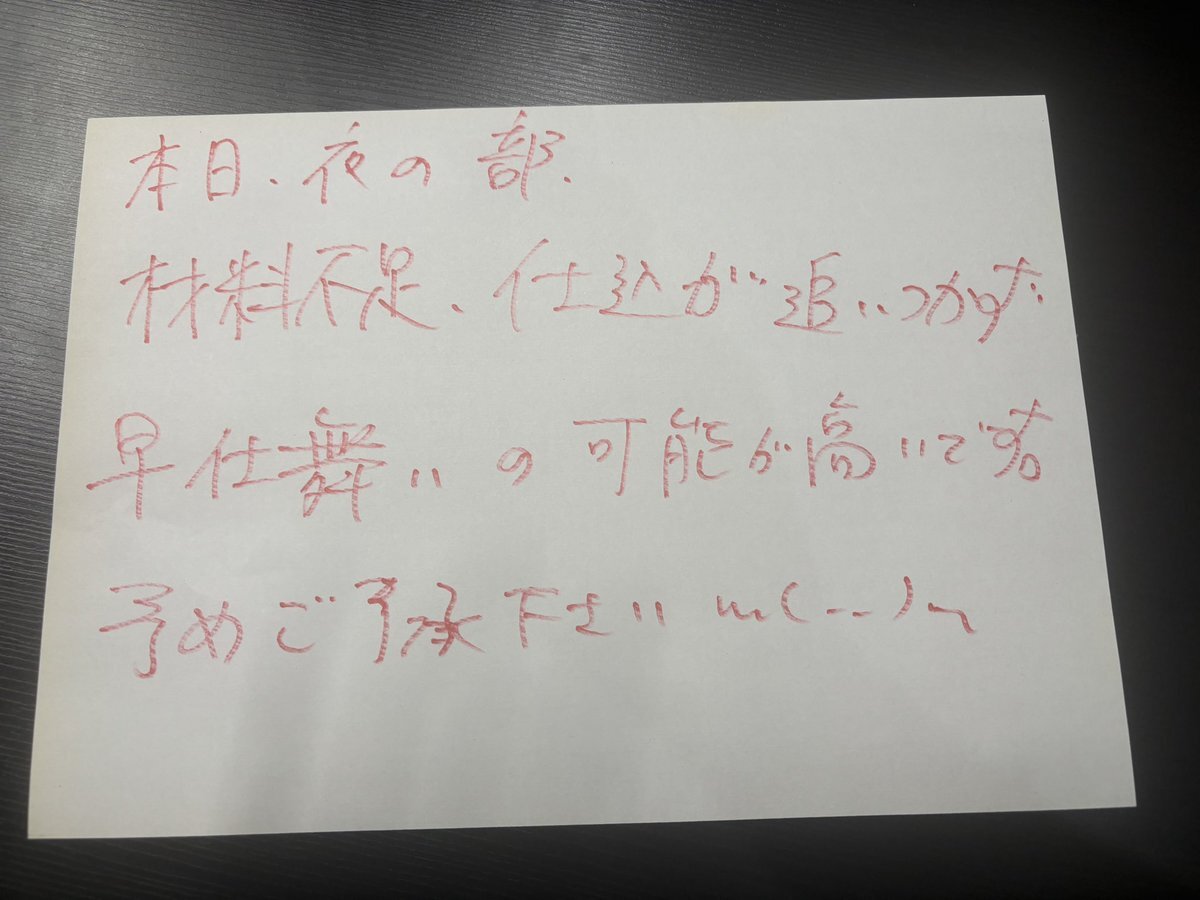 本日、夜の部、
材料不足、仕込が追いつかず
早仕舞いの可能が高いです
予めご了承下さい m(--)m